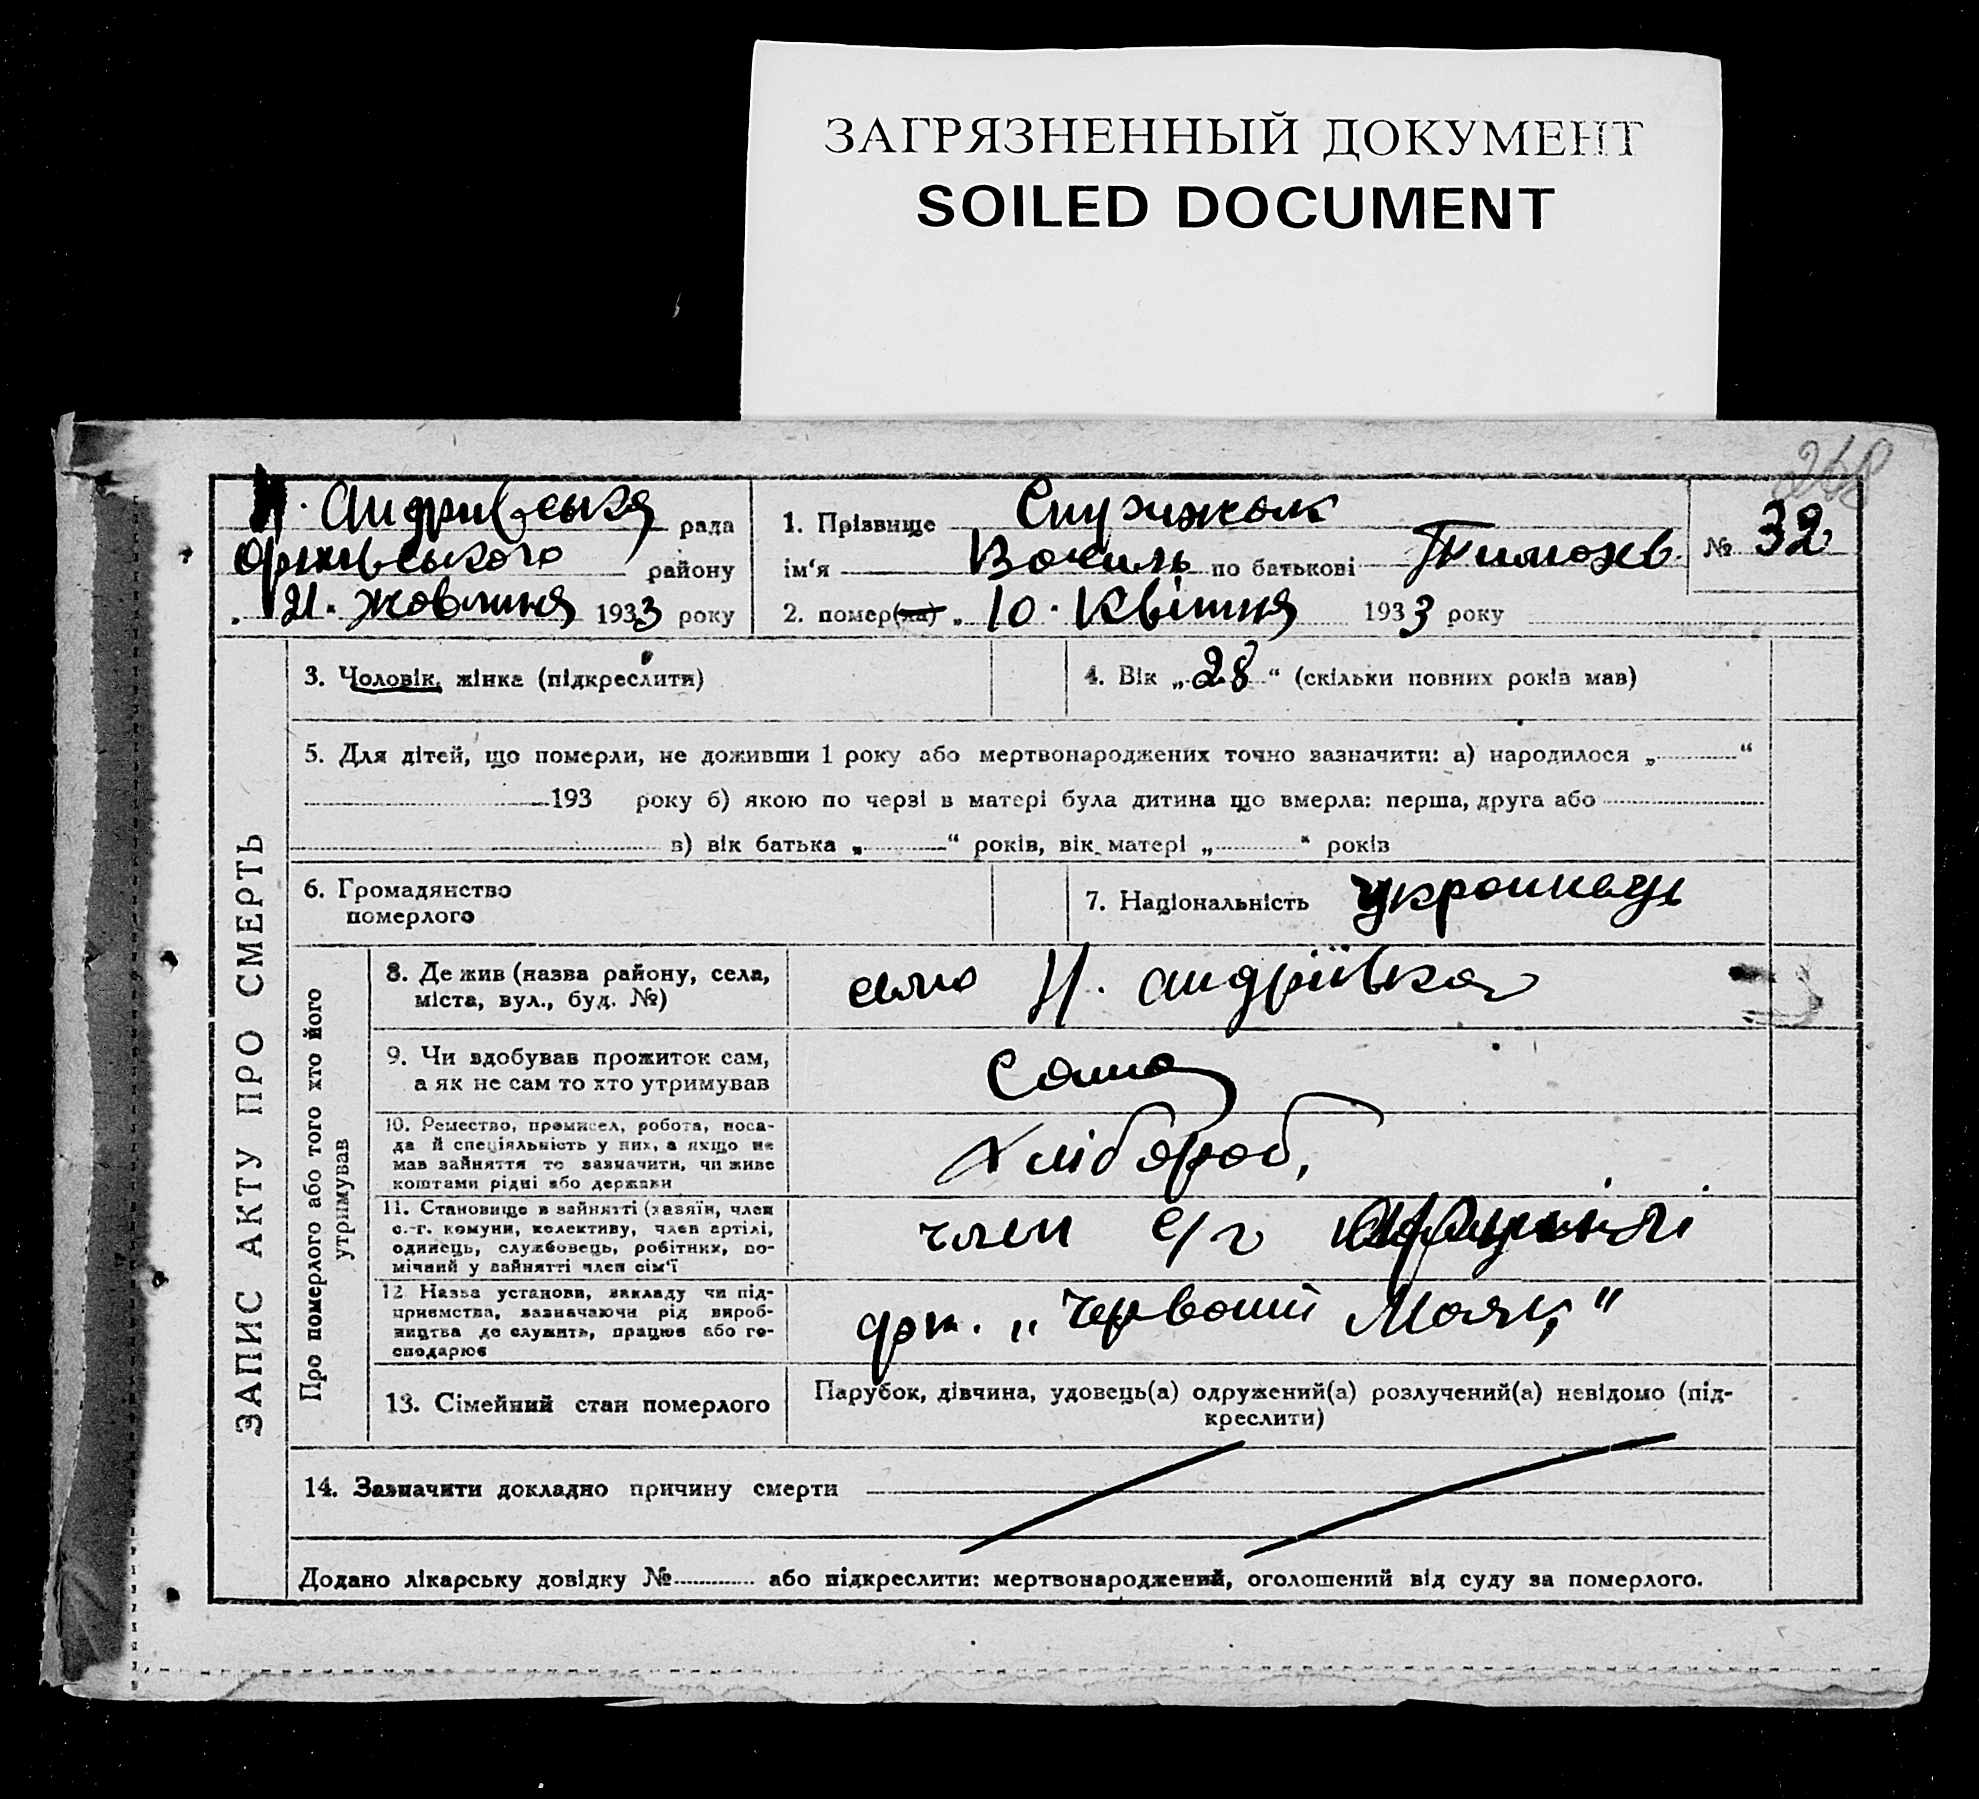 ЗАГРЯЗНЕННЫЙ ДОКУМЕНТ
SOILED DOCUMENT
268
Н. Андриївська рада
Оріхівського району
„ 21. жовтня 1933 року
1. Прізвище Стрижак
ім‘я Василь по батькові Тимохв.
№ 32
2. помер(ла) „ 10. Квітня 1933 року
ЗАПИС АКТУ ПРО СМЕРТЬ
3. Чоловік, жінка (підкреслити)
4. Вік „ 28 “ (скільки повних років мав)
5. Для дітей, що померли, не доживши 1 року або мертвонароджених точно зазначити: а) народилося „ “
193 року б) якою по черзі в матері була дитина що вмерла: перша, друга або
в) вік батька „ “ років, вік матері „ “ років
6. Громадянство
померлого
7. Національність українець
Про померлого або того хто його
утримував
8. Де жив (назва району, села,
міста, вул., буд. №)
село Н. Андріївка
9. Чи вдобував прожиток сам,
а як не сам то хто утримував
Сам
10. Ремество, промисел, робота, поса-
да й спеціяльність у них, а якщо не
мав зайняття то зазначити, чи живе
коштами рідні або держави
Хлібороб,
11. Становище в зайнятті (хазяїн, член
с.-г. комуни, колективу, член артілі,
одинець, службовець, робітник, по-
мічний у зайнятті член сім‘ї
член с/г
12 Назва установи, закладу чи під-
приємства, зазначаючи рід вироб-
ництва де служить, працює або го-
сподарює
арт. „Червоний Маяк"
13. Сімейний стан померлого
Парубок, дівчина, удовець(а) одружений(а) розлучений(а) невідомо (під-
креслити)
14. Зазначити докладно причину смерти
Додано лікарську довідку № або підкреслити: мертвонароджений, оголошений від суду за померлого.